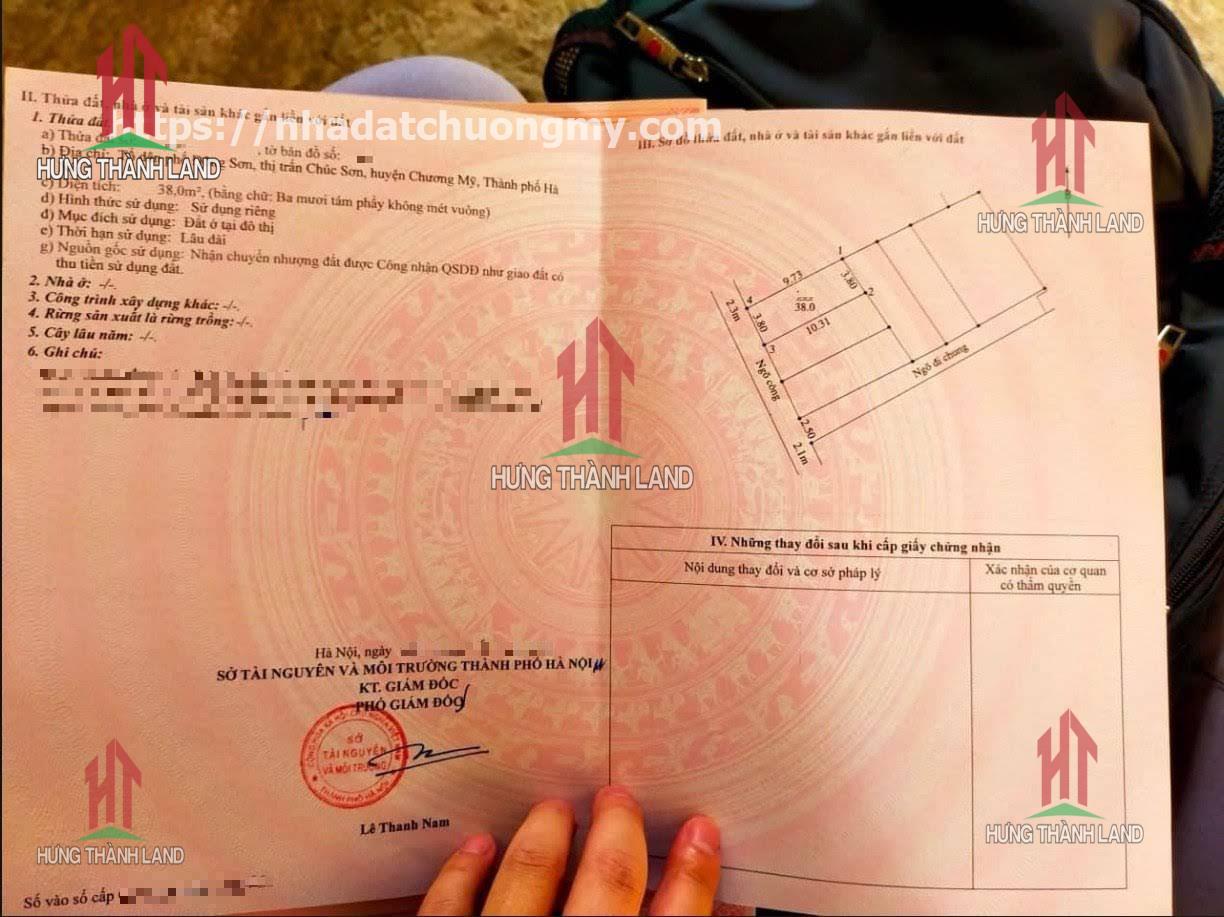 II. Thửa đất, nhà ở và tài sản khác gắn liền với đất
https://nhadatchuongmy.com
1. Thửa đất
a) Thửa đất số: , tờ bản đồ số:
b) Địa chỉ: Sơn, thị trấn Chúc Sơn, huyện Chương Mỹ, Thành phố Hà
c) Diện tích: 38,0m², (bằng chữ: Ba mươi tám phẩy không mét vuông)
d) Hình thức sử dụng: Sử dụng riêng
đ) Mục đích sử dụng: Đất ở tại đô thị
e) Thời hạn sử dụng: Lâu dài
g) Nguồn gốc sử dụng: Nhận chuyển nhượng đất được Công nhận QSDĐ như giao đất có
thu tiền sử dụng đất.
2. Nhà ở: -/-.
3. Công trình xây dựng khác: -/-.
4. Rừng sản xuất là rừng trồng: -/-.
5. Cây lâu năm: -/-.
6. Ghi chú:
Hà Nội, ngày
SỞ TÀI NGUYÊN VÀ MÔI TRƯỜNG THÀNH PHỐ HÀ NỘI
KT. GIÁM ĐỐC
PHÓ GIÁM ĐỐC
SỞ
TÀI NGUYÊN
VÀ MÔI TRƯỜNG
THÀNH PHỐ HÀ NỘI
Lê Thanh Nam
Số vào sổ cấp
III. Sơ đồ thửa đất, nhà ở và tài sản khác gắn liền với đất
B
1
9.73
3.80
2
4
38.0
2.3m
3.80
10.31
3
Ngõ công
Ngõ đi chung
2.50
2.1m
IV. Những thay đổi sau khi cấp giấy chứng nhận
Nội dung thay đổi và cơ sở pháp lý
Xác nhận của cơ quan
có thẩm quyền
HƯNG THÀNH LAND
HƯNG THÀNH LAND
HƯNG THÀNH LAND
HƯNG THÀNH LAND
HƯNG THÀNH LAND